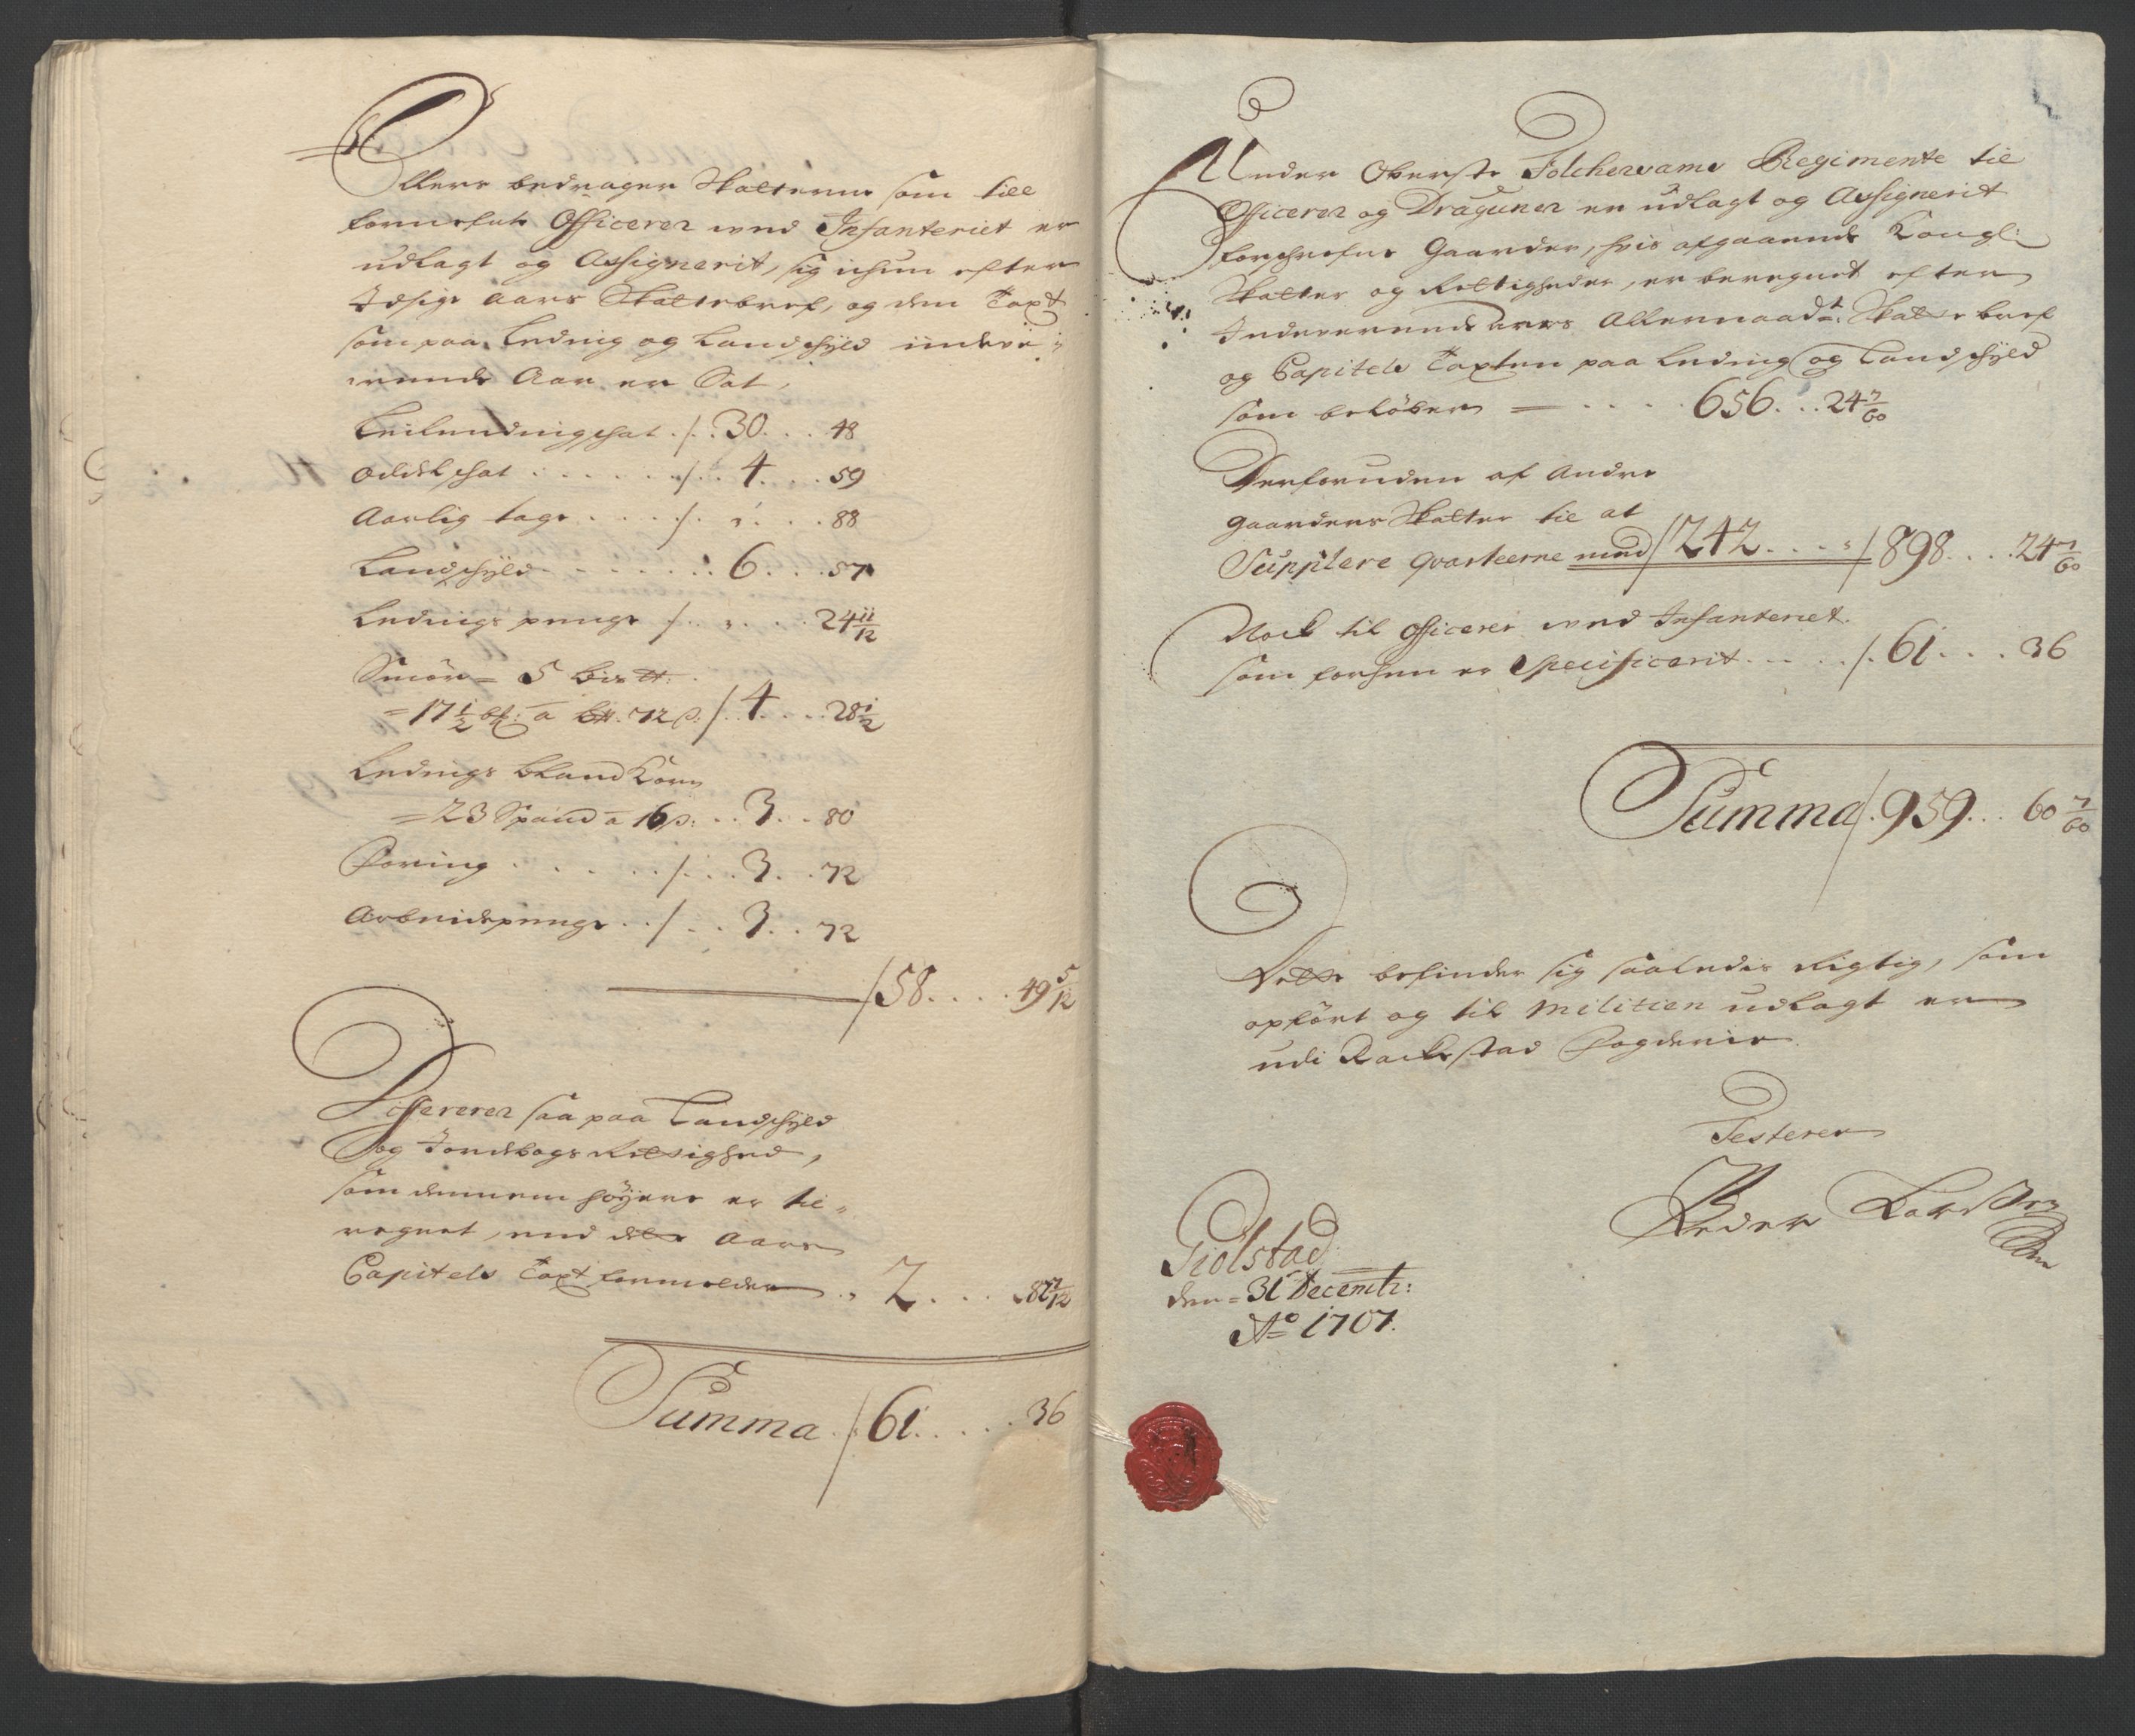 Ellers bedrager Skatterne som till
fornefnte Officerer ved Infanteriet er
udlagt og Assignerit, sig ichun efter
Idsige Aars Skattebref, og den Taxt
som paa Leding og Landschyld indeve-
rende Aar er Sat,
Leilendingschat ./. 30 . . . 48
Oddelschat . . . . . ./. . 4 . . . 59
Aarlig tage . . . . ./. „ . . . 88
Landschyld . . . . . . . 6 . . . 57
Ledings penge ./. . „ . . . 24 11/12
Smör = 5 bis tt:
= 17 1/2 bf: a btt. 72 s: /. 4 . . . 28 1/2
Ledings bland Korn
= 23 Spand a 16 s: . . 3 . . 80
Foring . . . . . ./. . . 3 . . 72
Arbeidspenge . ./. . . 3 . . 72
/58 . . . . 49 5/12
Differerer saa paa Landschyld
og Jordebogs Rettighed,
som dennem höyere er til-
regnet, end dette Aars
Capitels Taxt formelder . „ 2 . . . . 82 7/12
Summa . /. 61 . . . . 36
Under Oberste Tolchervams Regimente til
Officerer og Draguner er udlagt og Assignerit
forschrefne Gaarder, hvis afgaaende Kongl:
Skatter og Rettigheder, er beregnet efter
Indeverende aars Allernaadt: Skatte bref
og Capitels Taxten paa Leding og Landschyld
som belöber = . . . . 656 . . . 24 7/60
Derforuden af Andre
gaarders Skatter til at
Supplere qvarteerne med /242 . . . „ /898 . . . 24 7/60
Noch til Officerer ved Infanteriet
som forhen er Specificerit . . . . /. 61 . . . 36
Summa /. 959 . . . 60 7/60
Dette befindes sig saaledis Rigtig, som
opfört og til Militien udlagt er
udi Rackestad Fogderie.
Testerer
Peder
Giölstad
den = 31 Decembr:
Ao 1707.